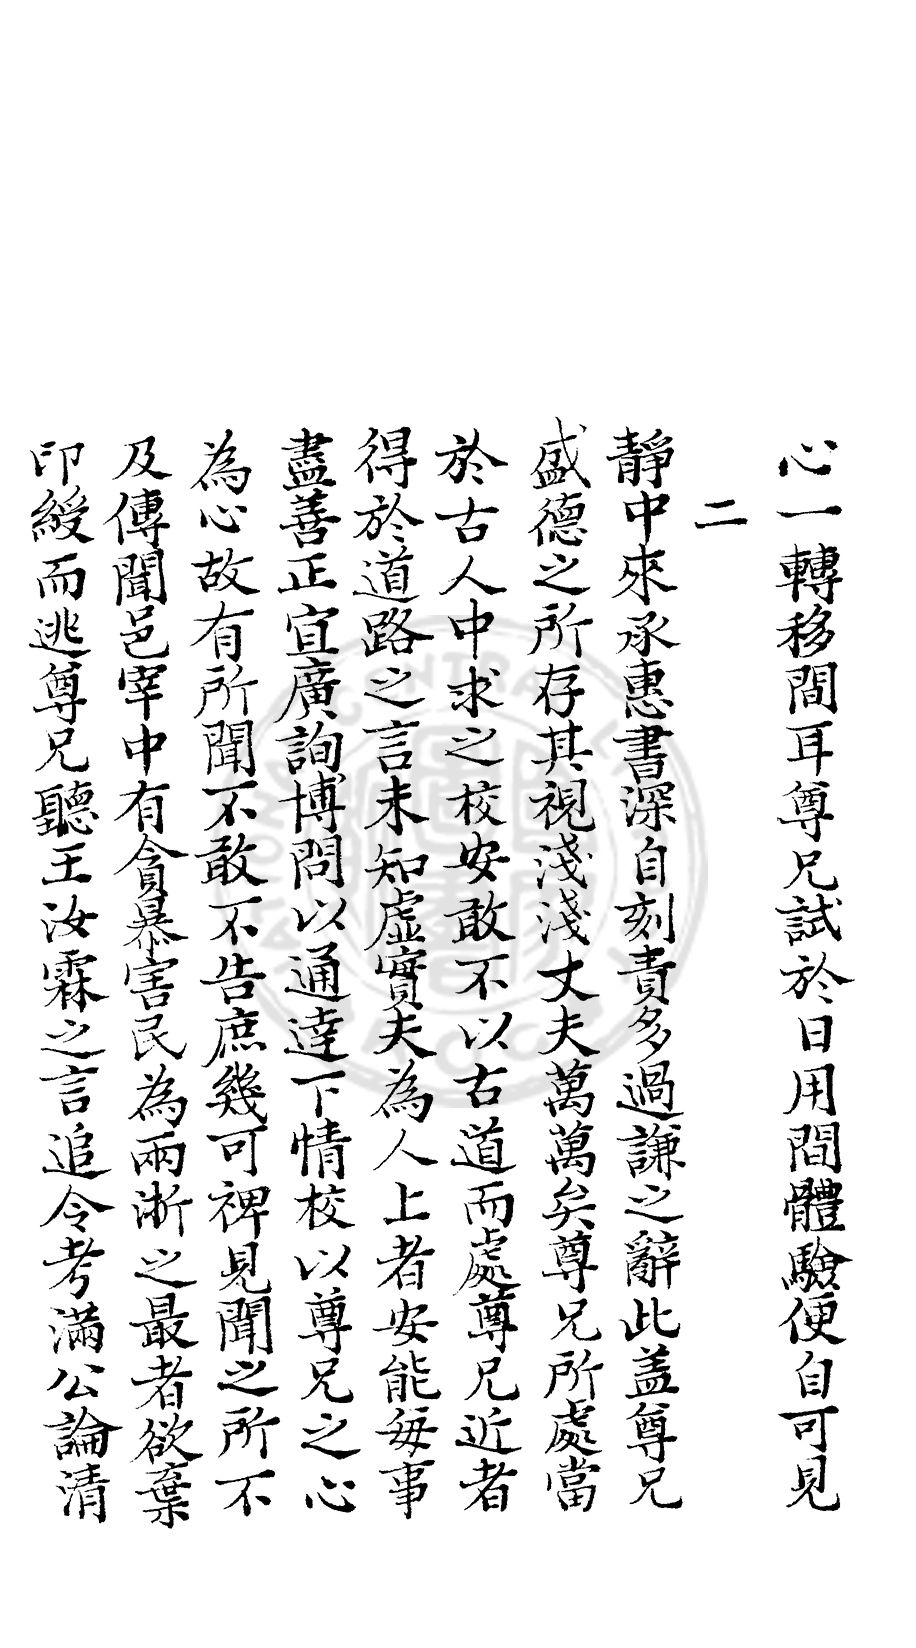 心一轉移間耳尊兄試於日用間體驗便自可見
二
靜中來承惠書深自刻責多過謙之辭此盖尊兄
盛德之所存其視淺淺丈夫萬萬矣尊兄所處當
於古人中求之校安敢不以古道而處尊兄近者
得於道路之言未知虛實夫為人上者安能每事
盡善正宜廣詢博問以通達下情校以尊兄之心
為心故有所聞不敢不告庶幾可裨見聞之所不
及傳聞邑宰中有貪暴害民為兩淅之最者欲棄
印綬而逃尊兄聽王汝霖之言追令考滿公論清